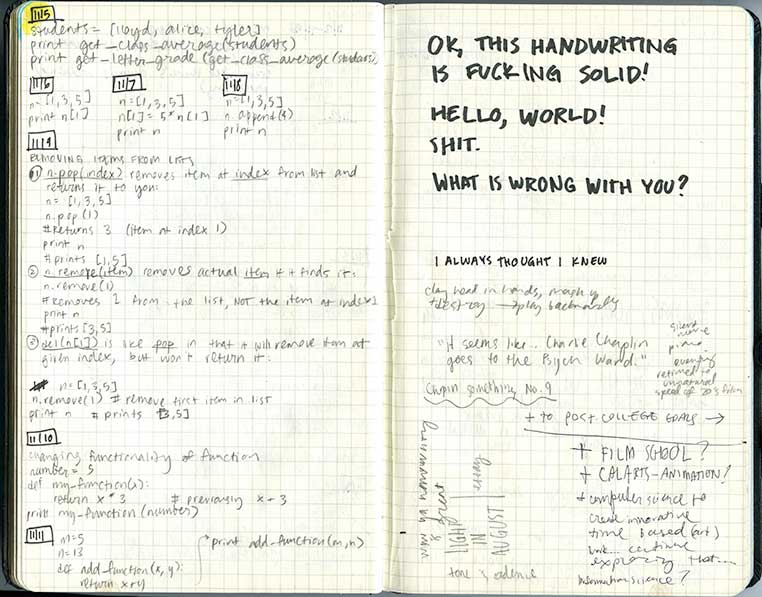 11/5
students = [lloyd, alice, tyler]
print get_class_average(students)
print get_letter_grade (get_class_average(students)
11/6
n=[1,3,5]
print n[1]
11/7
n=[1,3,5]
n[1] = 5*n[1]
print n
11/8
n=[1,3,5]
n.append(4)
print n
11/9
REMOVING ITEMS FROM LISTS
① n.pop(index) removes item at index from list and
returns it to you:
n= [1,3,5]
n.pop(1)
#Returns 3 (item at index 1)
print n
#prints [1,5]
② n.remove(item) removes actual item if it finds it:
n.remove(1)
#Removes 1 from the list, NOT the item at index 1
print n
#prints [3,5]
③ del(n[1]) is like pop in that it will remove item at
given index, but won't return it:
n= [1,3,5]
n.remove(1) # remove first item in list
print n # prints [3,5]
11/10
changing functionality of function
number = 5
def my-function(x):
return x * 3 # previously x + 3
print my-function (number)
11/11
m=5
n=13
def add-function(x, y):
return x+y
print add-function(m,n)
OK, THIS HANDWRITING
IS FUCKING SOLID!
HELLO, WORLD!
SHIT.
WHAT IS WRONG WITH YOU?
I ALWAYS THOUGHT I KNEW
clay head in hands, mash up
+ destroy → play backwards
"it seems like.. Charlie Chaplin
goes to the Psych Ward."
silent
movie
piano
everything
retimed to
unnatural
speed of 20's films
Chopin something No. 9
+ TO POST-COLLEGE GOALS →
+ FILM SCHOOL?
+ CALARTS-ANIMATION?
+ computer science to
create innovative
time based (art)
work... continue
exploring that...
Information science?
AUGUST
IN
HIGH
tone & cadence